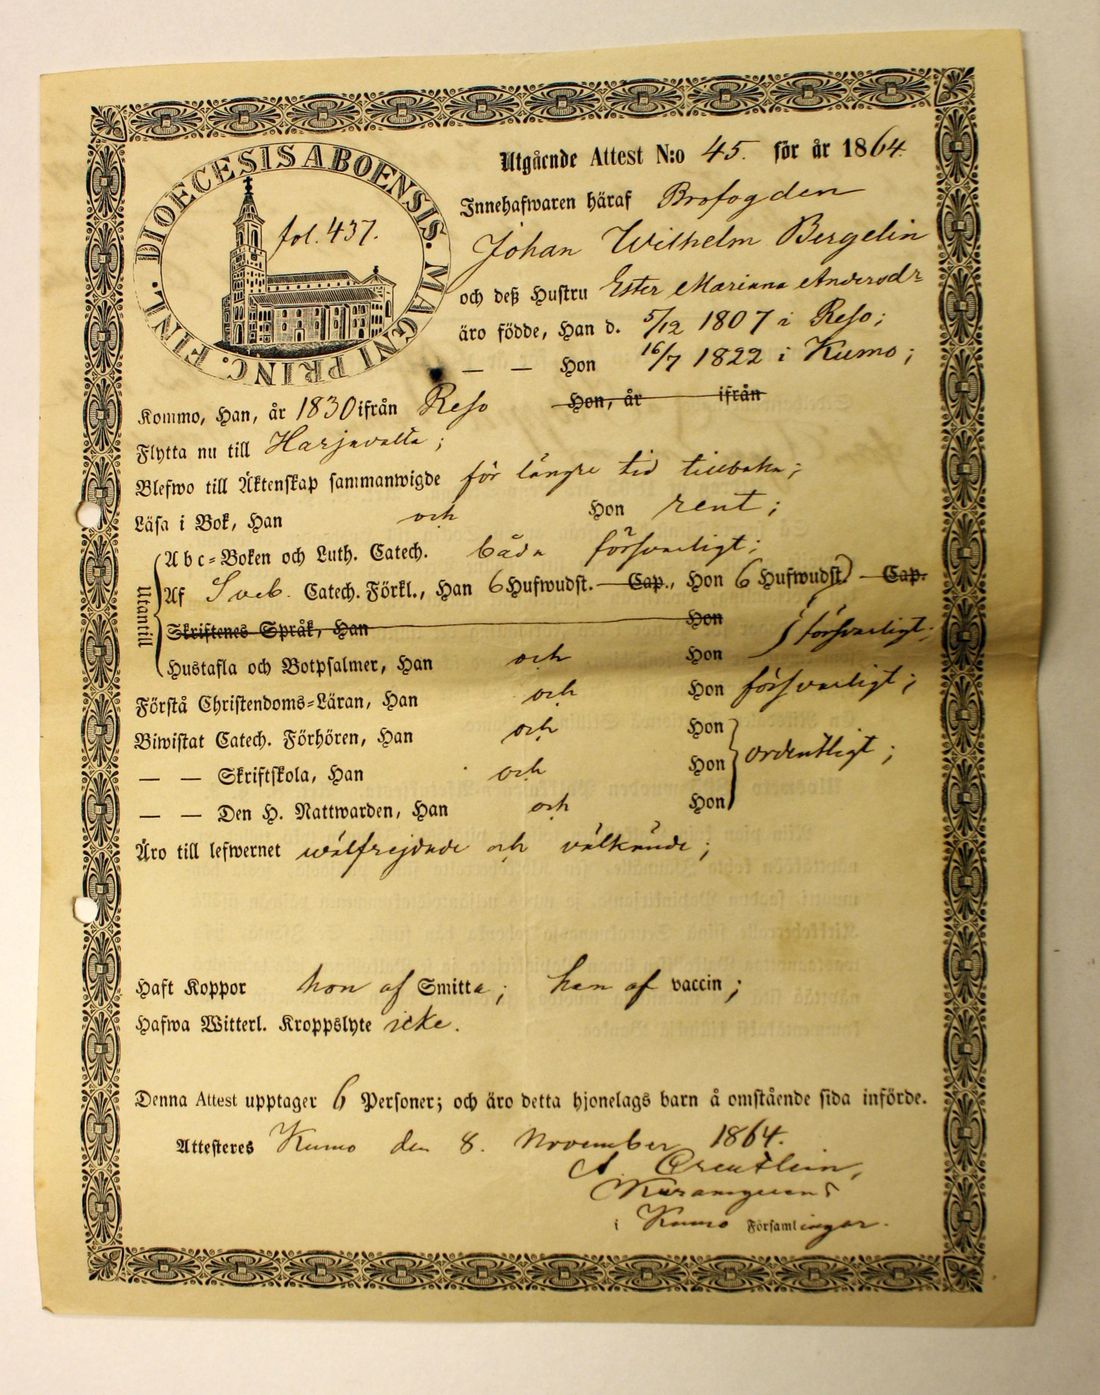 DIOECESIS ABOENSIS. MAGNI PRINC. FINL.
fol. 437.
Utgående Attest N:o 45. för år 1864.
Innehafwaren häraf Brofogden
Johan Wilhelm Bergelin
och deß Hustru Ester Mariana Andersdr
äro födde, Han d. 5/12 1807 i Reso;
— — Hon 16/7 1822 i Kumo;
Kommo, Han, år 1830 ifrån Reso Hon, år ifrån
Flytta nu till Harjavalta;
Blefwo till Äktenskap sammanwigde för längre tid tillbaka;
Läsa i Bok, Han och Hon rent;
Utantill
Abc-Boken och Luth. Catech. båda försvarligt;
Af Sveb. Catech. Förkl., Han 6 Hufwudst. — Cap., Hon 6 Hufwudst. — Cap.
Skriftenes Språk, Han Hon försvarligt;
Hustafla och Botpsalmer, Han och Hon
Förstå Christendoms-Läran, Han och Hon försvarligt;
Biwistat Catech. Förhören, Han och Hon
— — Skriftskola, Han och Hon ordentligt;
— — Den H. Nattwarden, Han och Hon
Äro till lefwernet wälfrejdade och välkände;
Haft Koppor hon af Smitta; han af vaccin;
Hafwa Witterl. Kroppslyte icke.
Denna Attest upptager 6 Personer; och äro detta hjonelags barn å omstående sida införde.
Attesteres Kumo den 8. November 1864.
A.
i Kumo Församlingar.